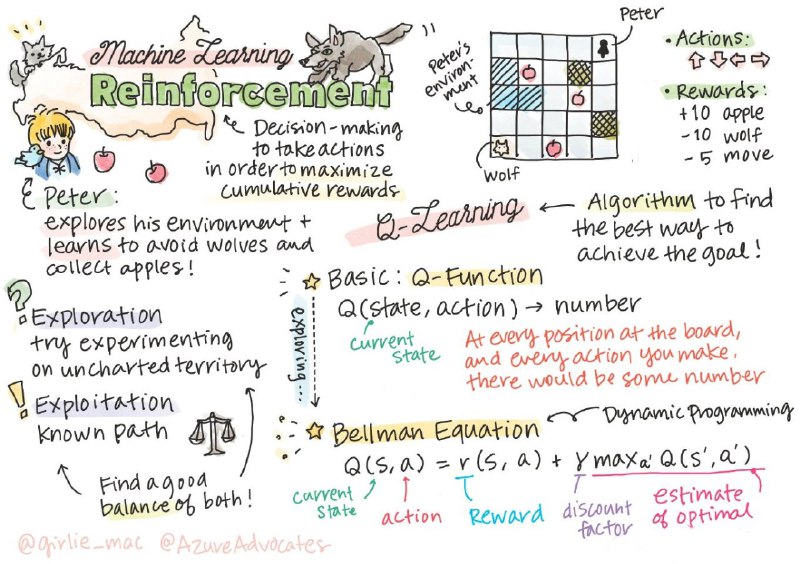 Machine Learning
Reinforcement
Decision-making
to take actions
in order to maximize
cumulative rewards
Peter:
explores his environment +
learns to avoid wolves and
collect apples!
Peter
Peter's
environ-
ment
Wolf
• Actions:
⇧ ⇩ ⇦ ⇨
• Rewards:
+10 apple
-10 wolf
-5 move
Q-Learning
Algorithm to find
the best way to
achieve the goal!
? Exploration
try experimenting
on uncharted territory
! Exploitation
known path
Find a good
balance of both!
exploring...
Basic: Q-Function
Q(state, action) → number
current
state
At every position at the board,
and every action you make,
there would be some number
Bellman Equation
Dynamic Programming
Q(s, a) = r(s, a) + γ maxₐ' Q(s', a')
current
state
action
Reward
discount
factor
estimate
of optimal
@girlie_mac @AzureAdvocates